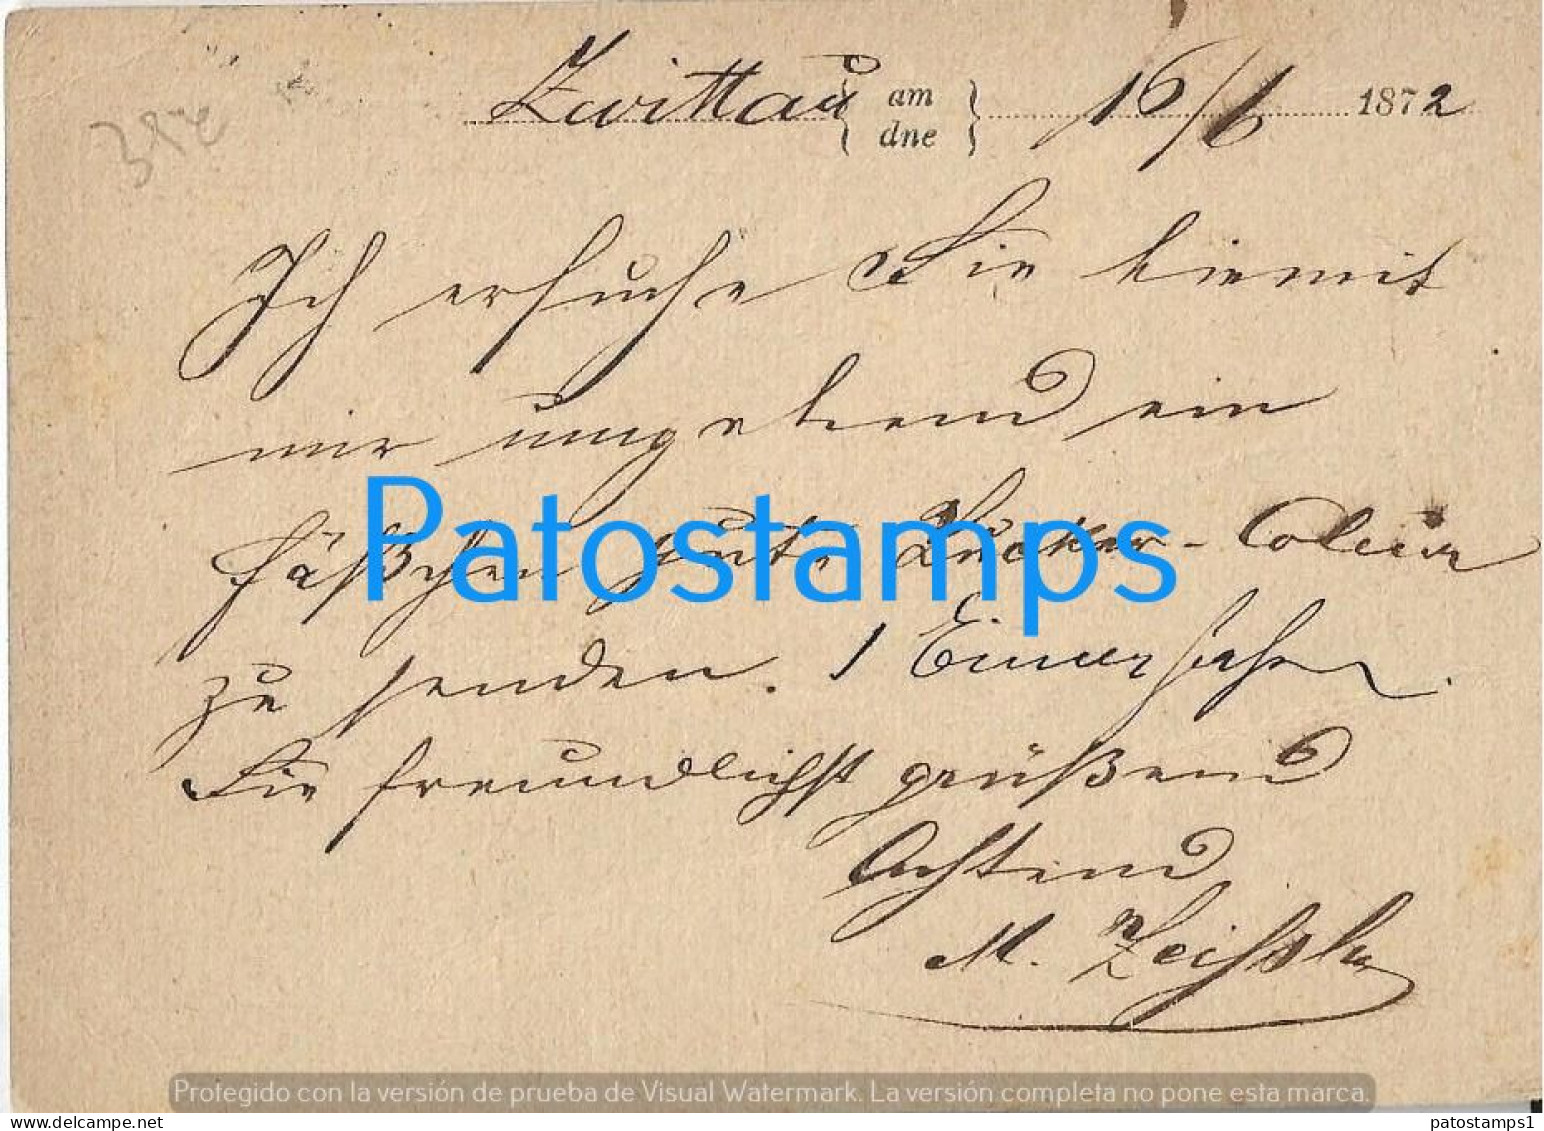 Zwittau { am } 16/6 1872
dne
Ich ersuche Sie hiemit
mir umgehend ein
Fäßchen gute Zucker-Coleur
zu senden. 1 Eimer
Sie freundlichst grüßend
Achtend
M.
Patostamps
Protegido con la versión de prueba de Visual Watermark. La versión completa no pone esta marca.
delcampe.net
patostamps1